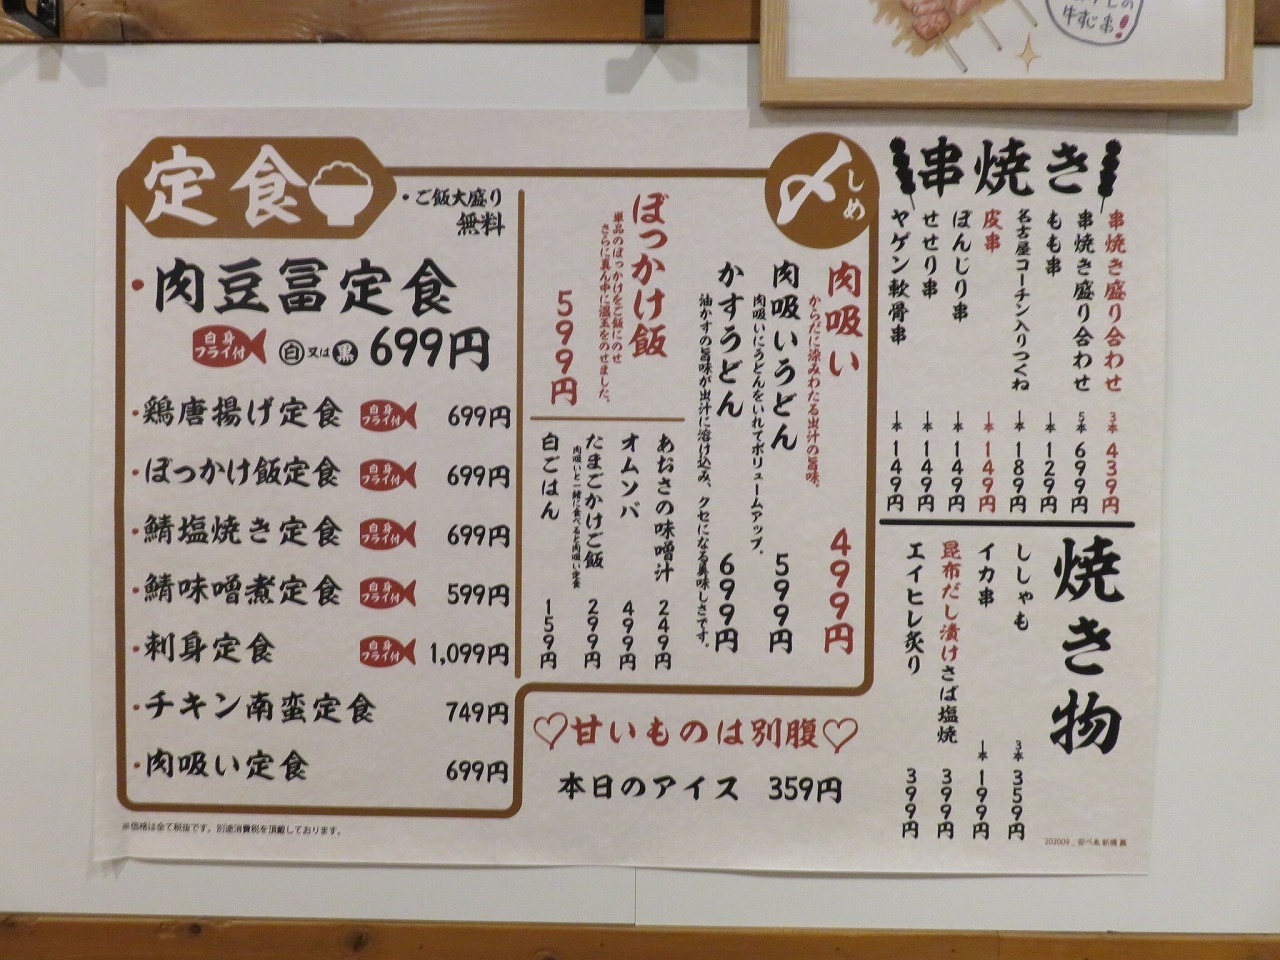 牛すじ串!
定食
・ご飯大盛り
無料
・肉豆冨定食
白身フライ付
白又は黒 699円
・鶏唐揚げ定食 白身フライ付 699円
・ぼっかけ飯定食 白身フライ付 699円
・鯖塩焼き定食 白身フライ付 699円
・鯖味噌煮定食 白身フライ付 599円
・刺身定食 白身フライ付 1,099円
・チキン南蛮定食 749円
・肉吸い定食 699円
※価格は全て税抜です。別途消費税を頂戴しております。
〆しめ
肉吸い 499円
からだに染みわたる出汁の旨味。
肉吸いうどん 599円
肉吸いにうどんをいれてボリュームアップ。
かすうどん 699円
油かすの旨味が出汁に溶け込み、クセになる美味しさです。
ぼっかけ飯
単品のぼっかけをご飯にのせ
さらに真ん中に温玉をのせました。
599円
あおさの味噌汁 249円
オムソバ 499円
たまごかけご飯 299円
肉吸いと一緒に食べると肉吸い定食
白ごはん 159円
♡甘いものは別腹♡
本日のアイス 359円
串焼き
串焼き盛り合わせ 3本 439円
串焼き盛り合わせ 5本 699円
もも串 1本 129円
名古屋コーチン入りつくね 1本 189円
皮串 1本 149円
ぼんじり串 1本 149円
せせり串 1本 149円
ヤゲン軟骨串 1本 149円
焼き物
ししゃも 3本 359円
イカ串 1本 199円
昆布だし漬けさば塩焼 399円
エイヒレ炙り 399円